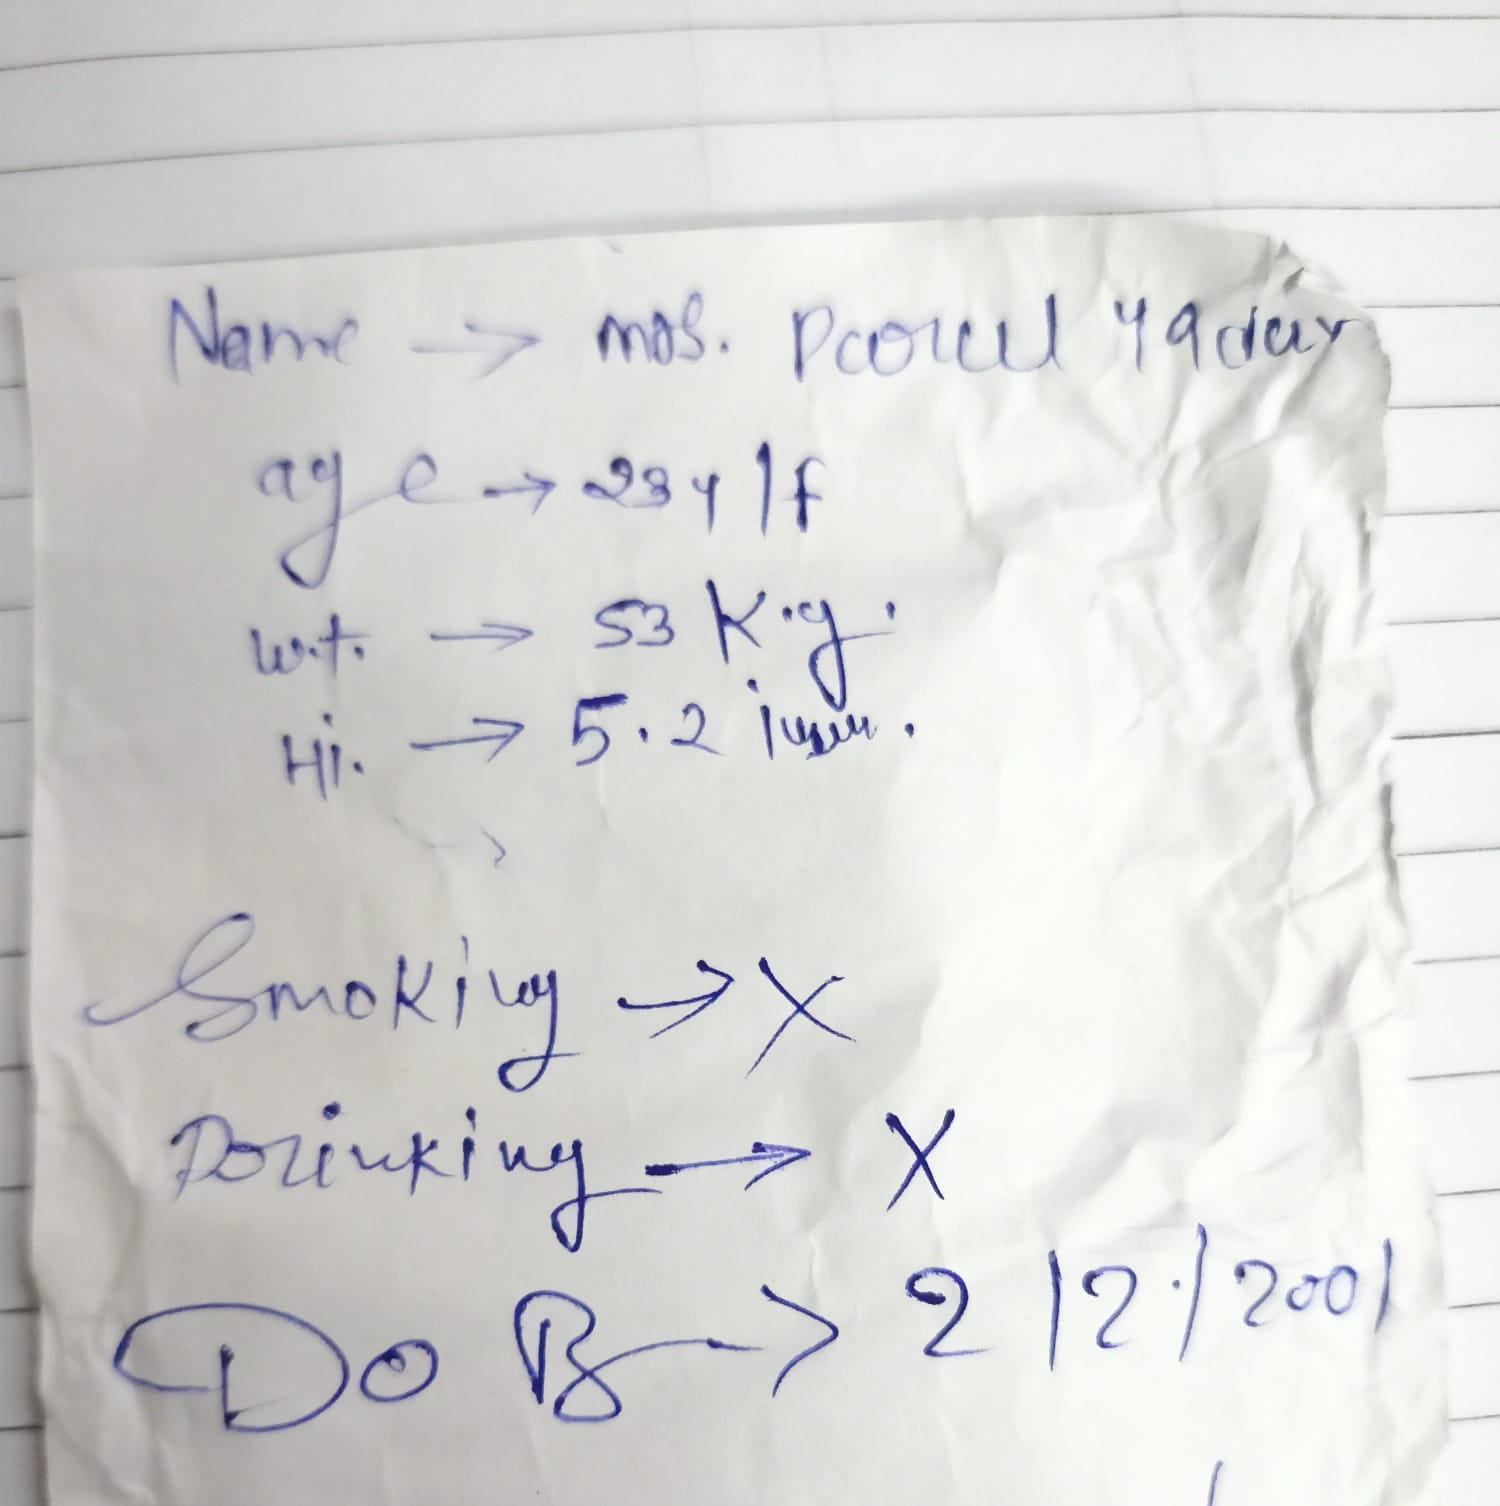 Name → mrs. Parul Yadav
age → 23y/f
wt. → 53 K.g.
Hi. → 5.2
Smoking → X
Drinking → X
DOB → 2/2/2001